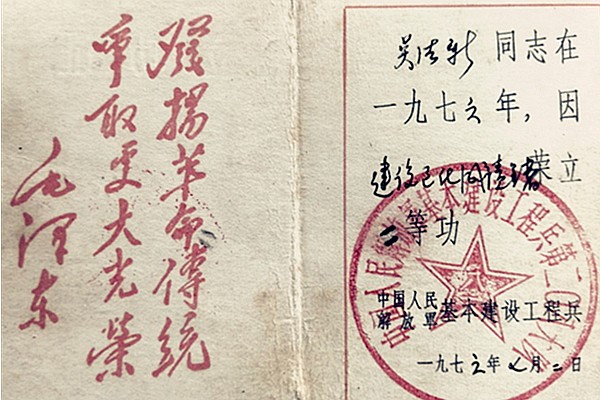 發揚革命傳統
爭取更大光榮
毛泽东
吴 新 同志在
一九七六年,因
荣立
二等功
中国人民
解放军 基本建设工程兵
一九七六年七月二日
中国人民解放军基本建设工程兵第二〇 大队